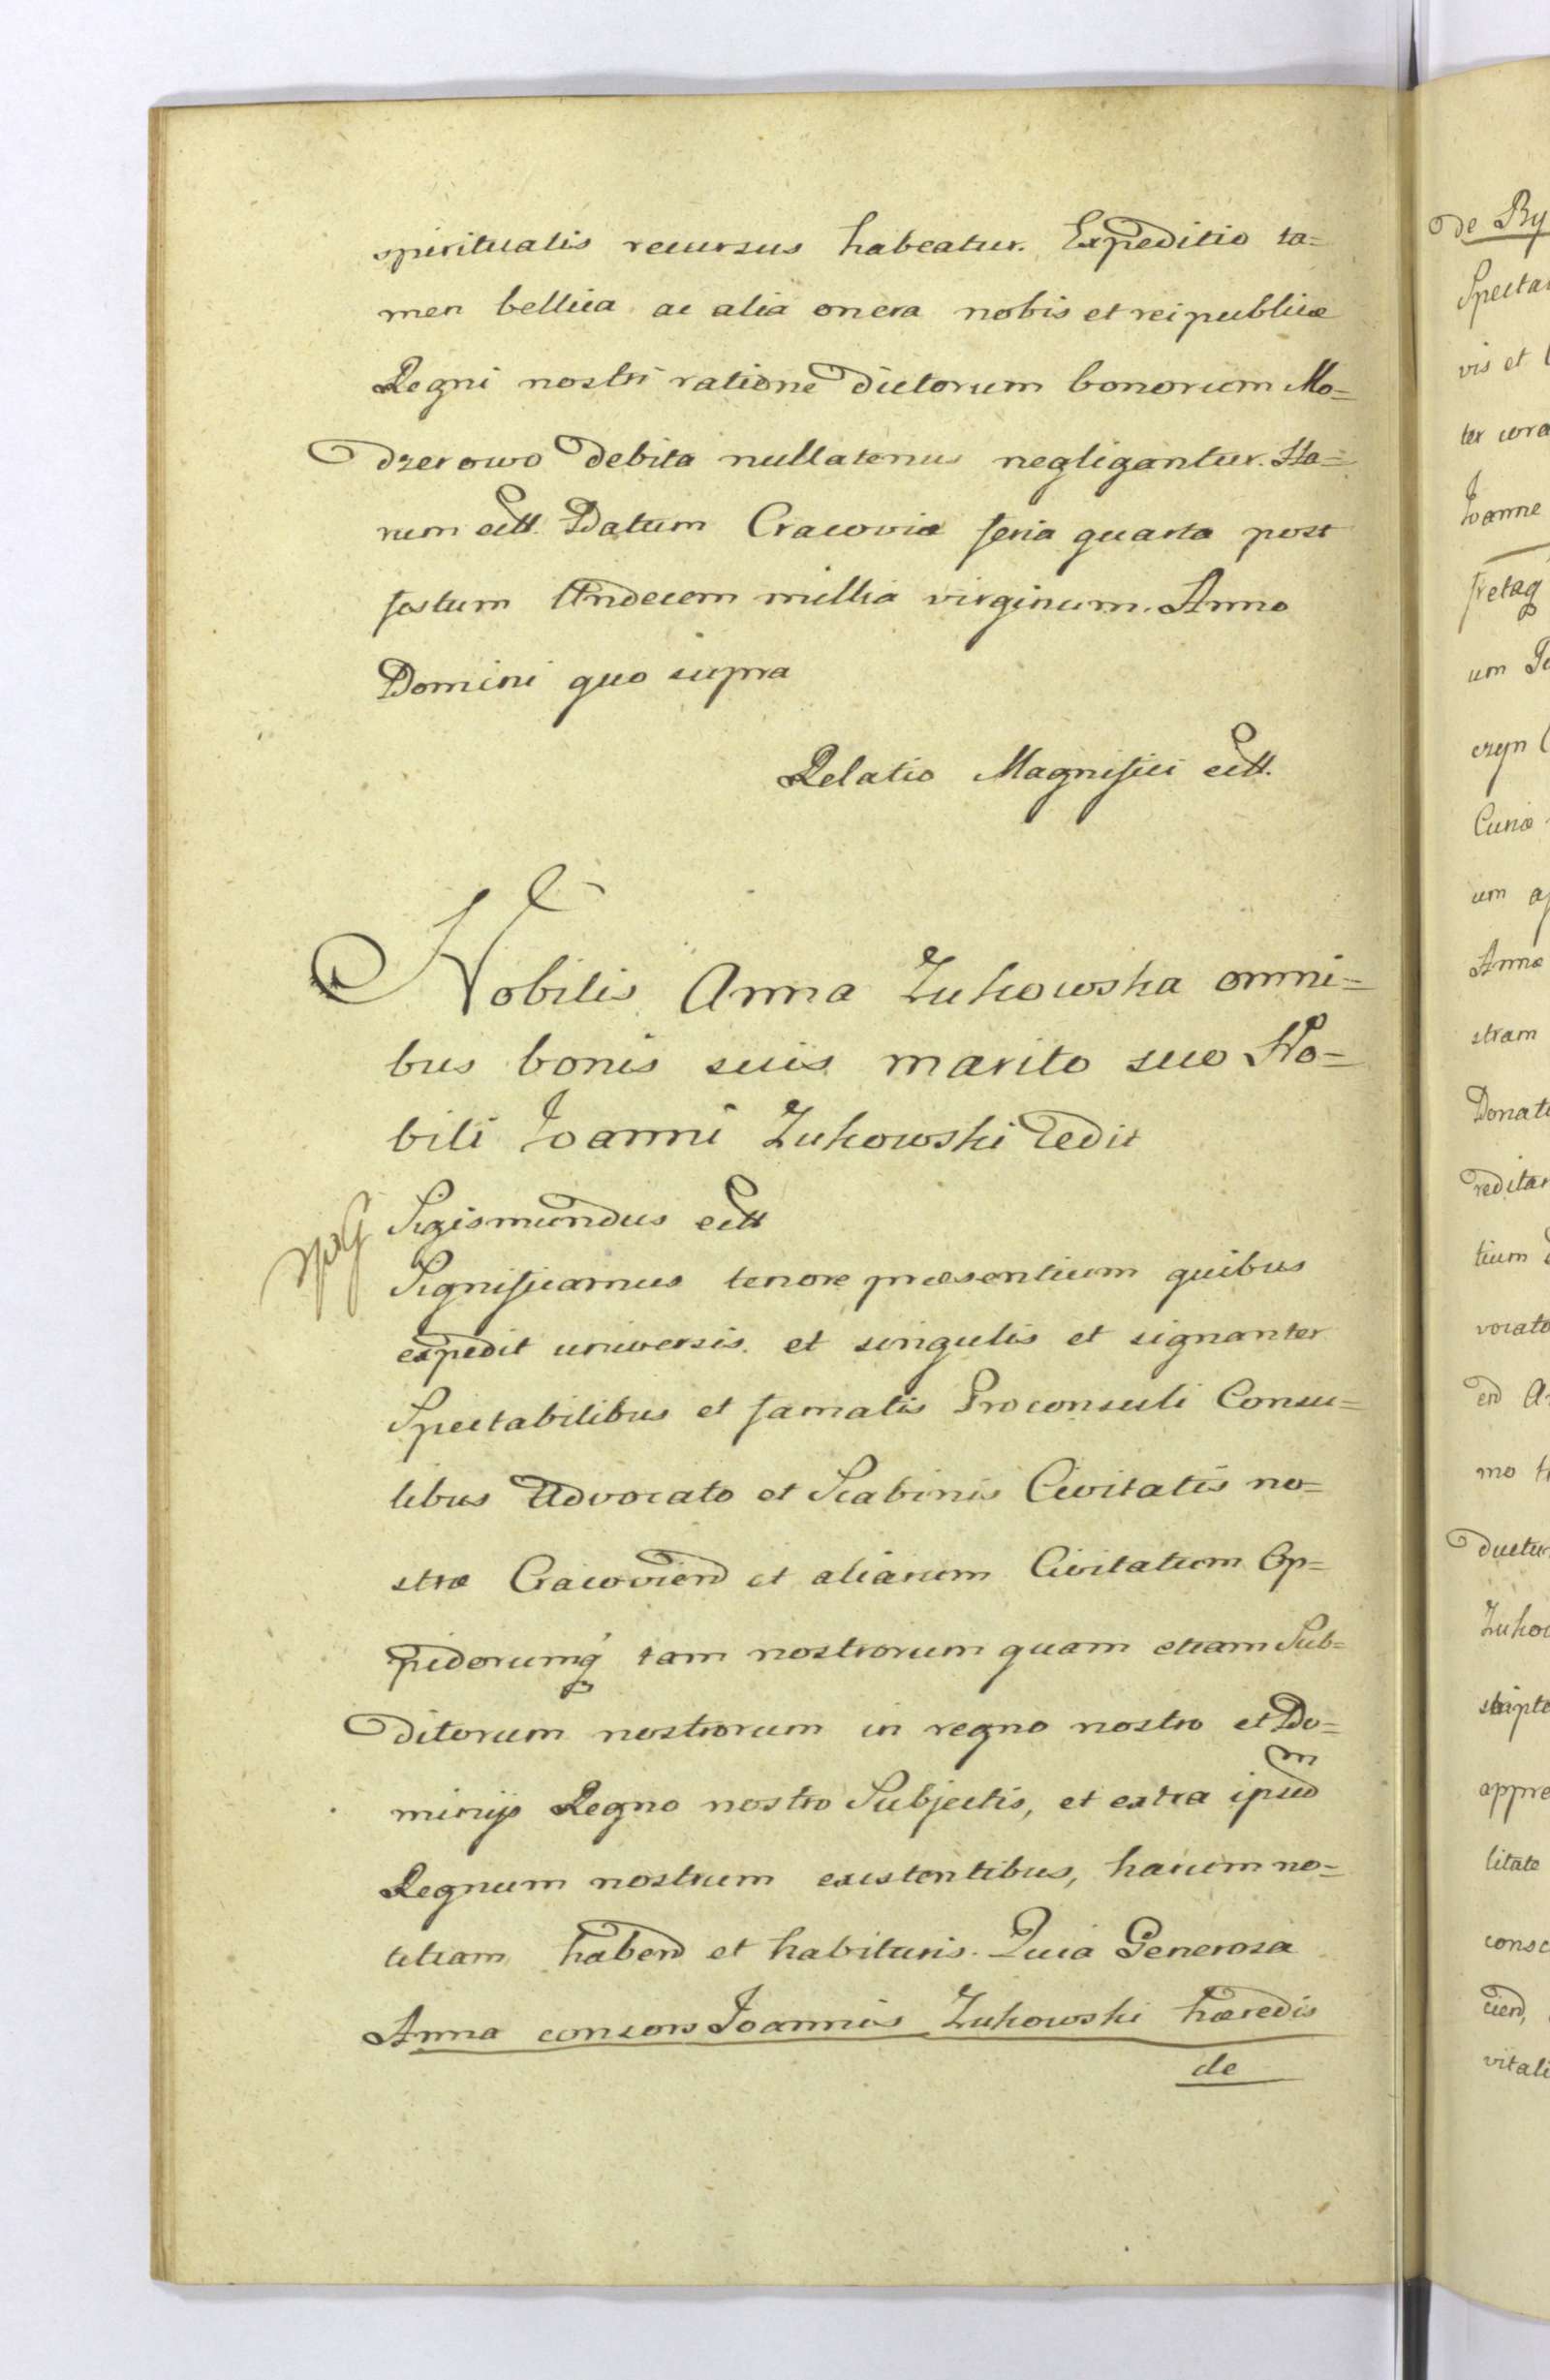 spiritualis recursus habeatur. Expeditio ta=
men bellica ac alia onera nobis et reipublicæ
Regni nostri ratione dictorum bonorum Mo=
drzerowo debita nullatenus negligantur. Ha=
rum ett. Datum Cracoviæ feria quarta post
festum Undecem millia virginum. Anno
Domini quo supra
Relatio Magnifici ett.
Nobilis Anna Zukowska omni=
bus bonis suis marito suo No=
bili Joanni Zukowski cedit
Sigismundus ett
Significamus tenore præsentium quibus
expedit universis. et singulis et signanter
Spectabilibus et famatis Proconsuli Consu=
libus Advocato et Scabinis Civitatis no=
stræ Cracoviend et aliarum Civitatum Op=
pidorumq́ tam nostrorum quam etiam Sub=
ditorum nostrorum in regno nostro et Do=
minijs Regno nostro Subjectis, et extra ipsudm
Regnum nostrum existentibus, harum no=
titiam habend et habituris. Quia Generosa
Anna consors Joannis Zukowski hæredis
de
de By
Spectab
vis et
ter cora
Joanne
um
czyn
Curiæ
um
Annæ
stram
Donati
reditar
tium
vocato
end
mo
ductu
Zukow
scripto
appre
litate
consc
ciend,
vitali